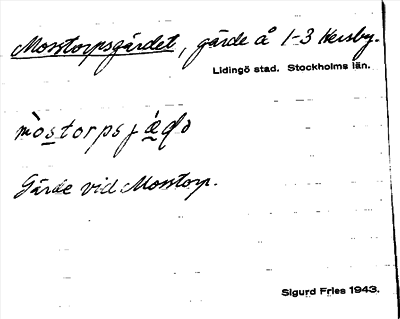 Mosstorpsgärdet, gärde å 1-3 Kersby.
Lidingö stad. Stockholms län.
Gärde vid Mosstorp.
Sigurd Fries 1943.